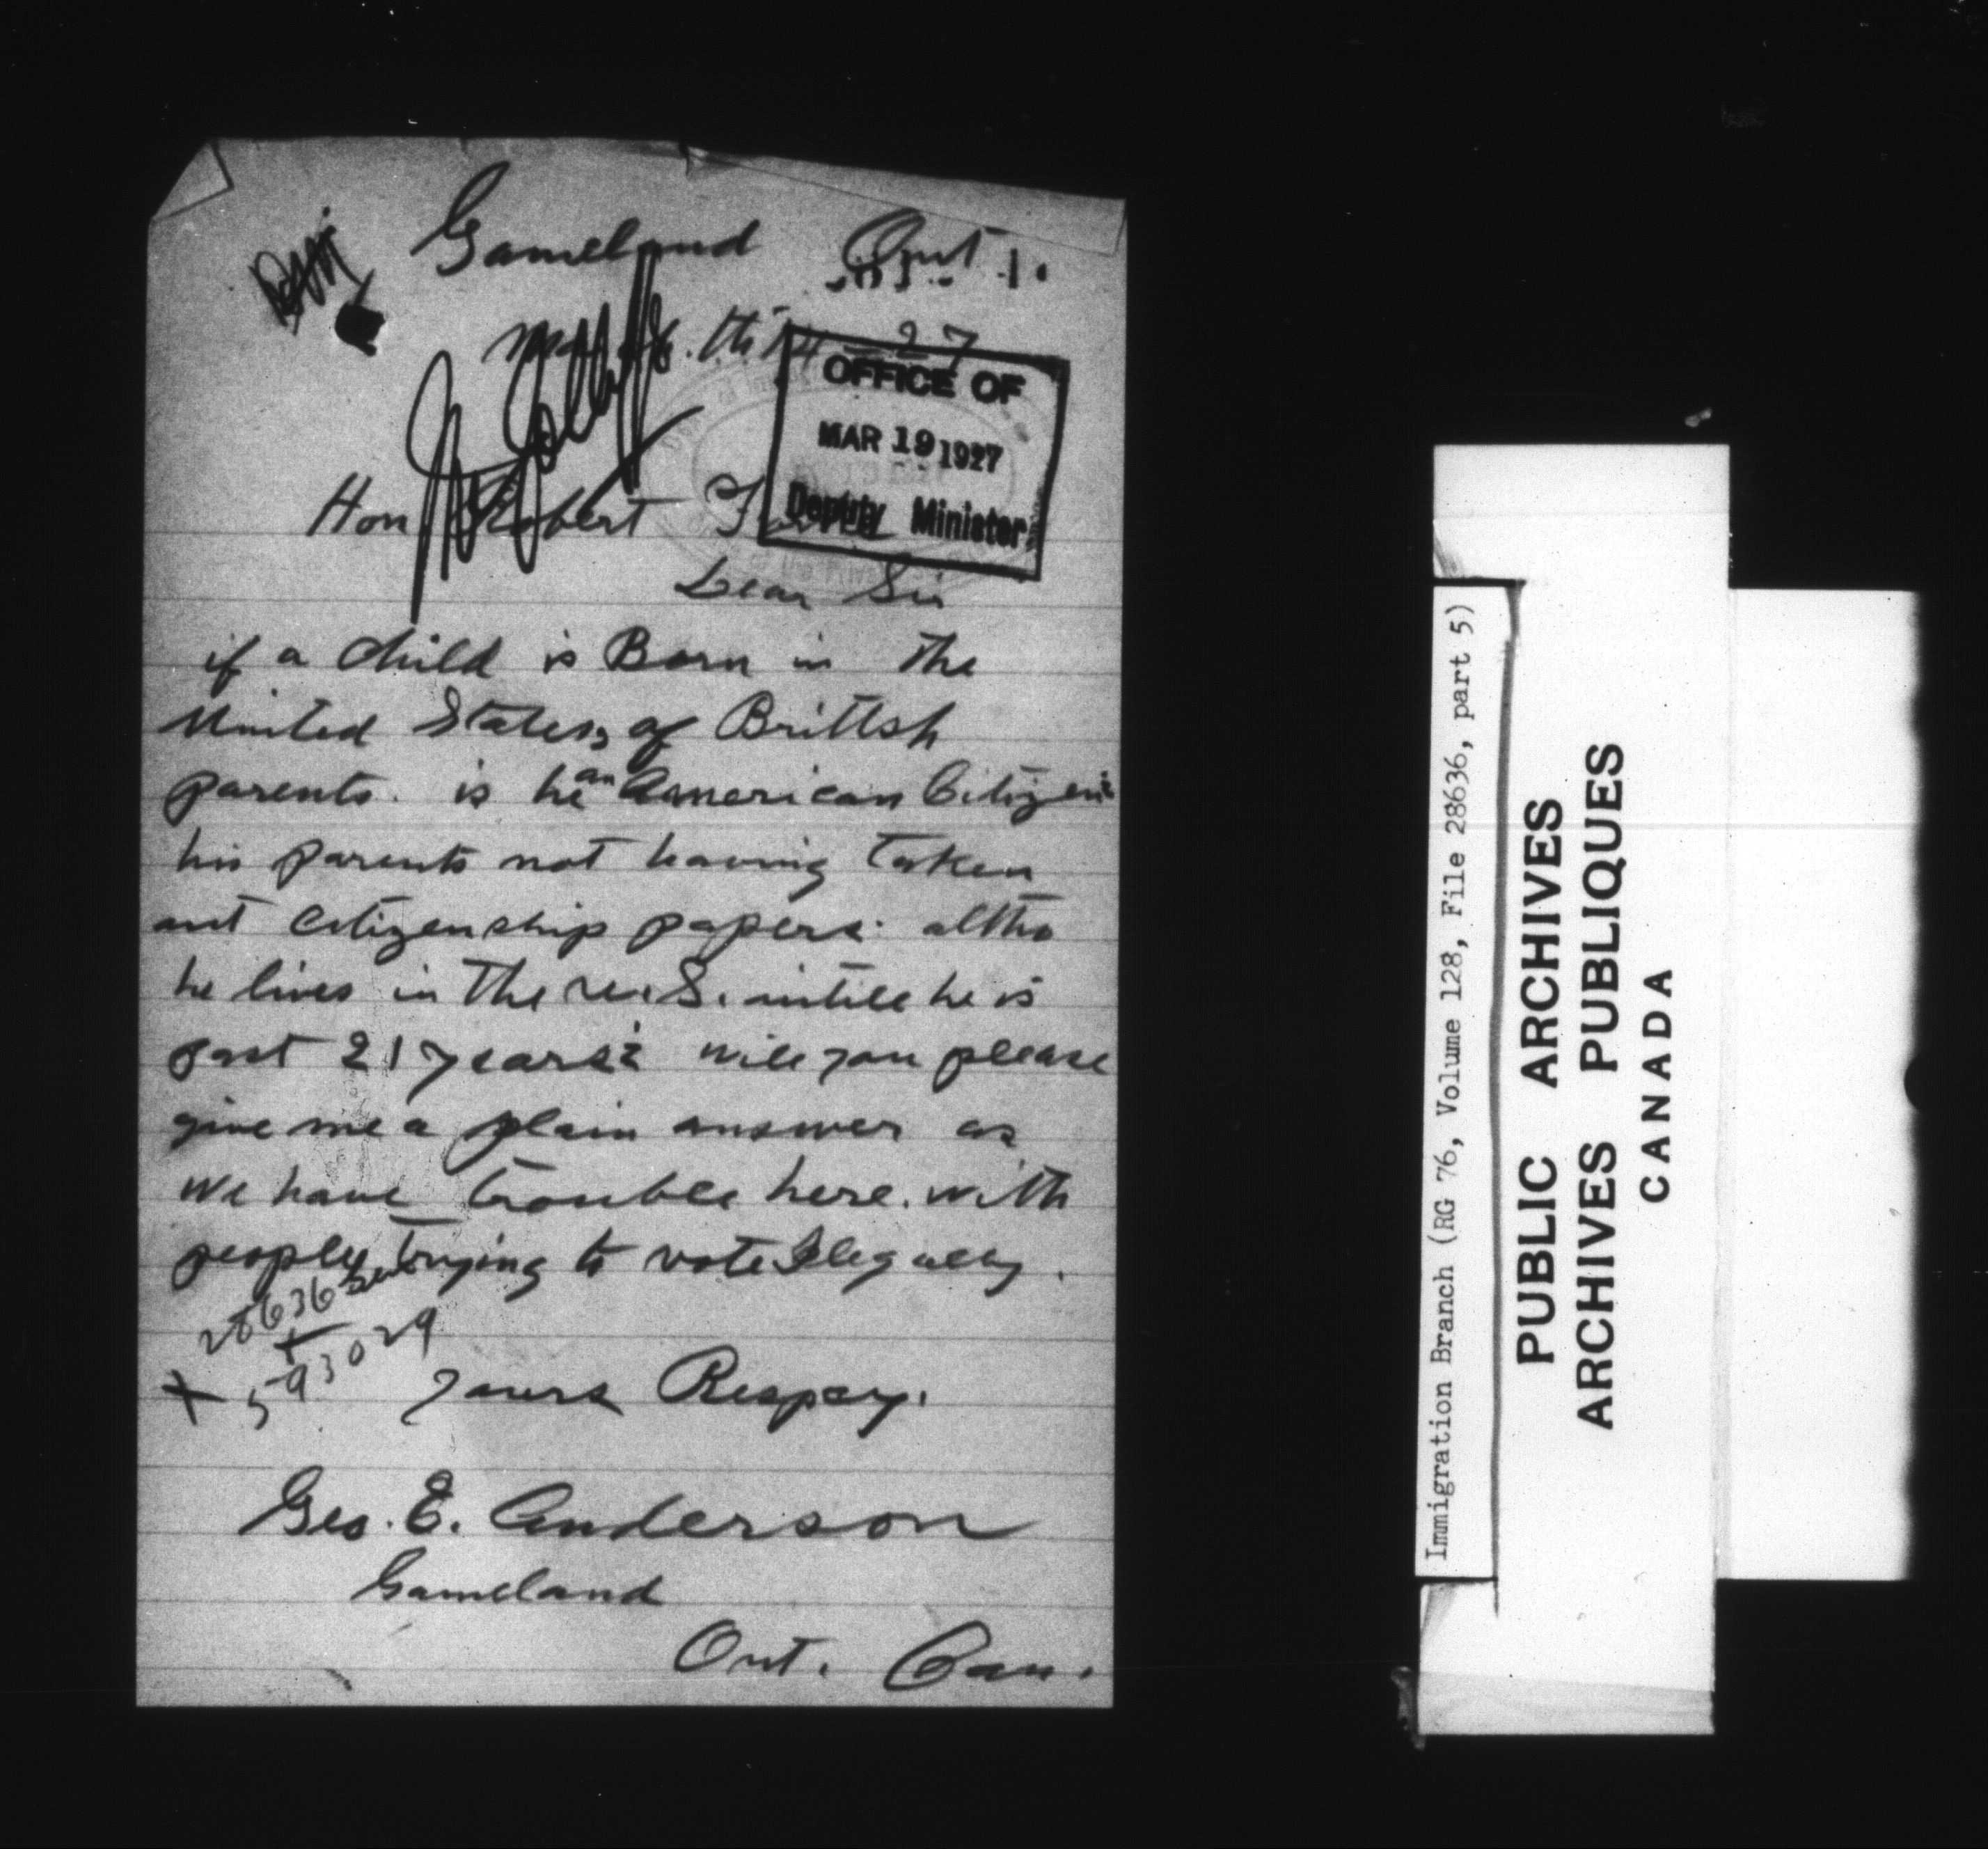 Gameland Ont.
27
OFFICE OF
MAR 19 1927
Deputy Minister
Hon Robert
Dear Sir
if a child is Born in the
United States, of Brittsh
parents. is he an American Citizen
his parents not having taken
out citizenship papers. altho
he lives in the U.S. untill he is
past 21 years? will you please
give me a plain answer as
we have trouble here. with
people trying to vote Illegally.
28636
593029
yours Respcy.
Geo. E. Anderson
Gameland
Ont. Can.
Immigration Branch (RG 76, Volume 128, File 28636, part 5)
PUBLIC ARCHIVES
ARCHIVES PUBLIQUES
CANADA